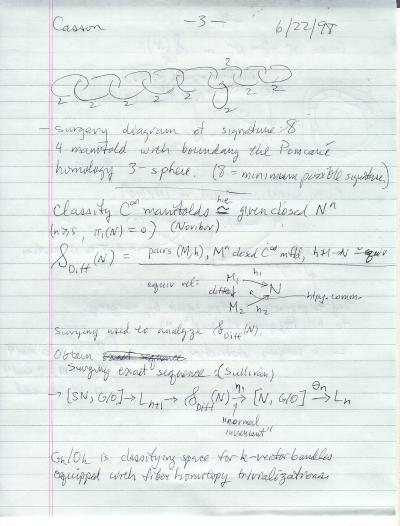 Casson -3- 6/22/98
2
2 2 2 2 2 2 2
- surgery diagram of signature 8
4 manifold with boundary the Poincaré
homology 3-sphere. (8 = minimum possible signature)
Classify C^∞ manifolds ≅ h.e. given closed N^n
(n≥5, π₁(N) = 0) (Novikov)
𝒮_Diff(N) = pairs (M,h), M^n closed C^∞ mfld, h: M→N ≃ equiv
equiv rel: M₁ h₁
diffeo N
M₂ h₂ htpy-comm.
Surgery used to analyze 𝒮_Diff(N).
Obtain
Surgery exact sequence: (Sullivan)
→ [SN, G/O] → L_{n+1} → 𝒮_Diff(N) →^{η} [N, G/O] →^{θn} L_n
"normal
invariant"
G_k/O_k is classifying space for k-vector bundles
equipped with fiber homotopy trivializations.